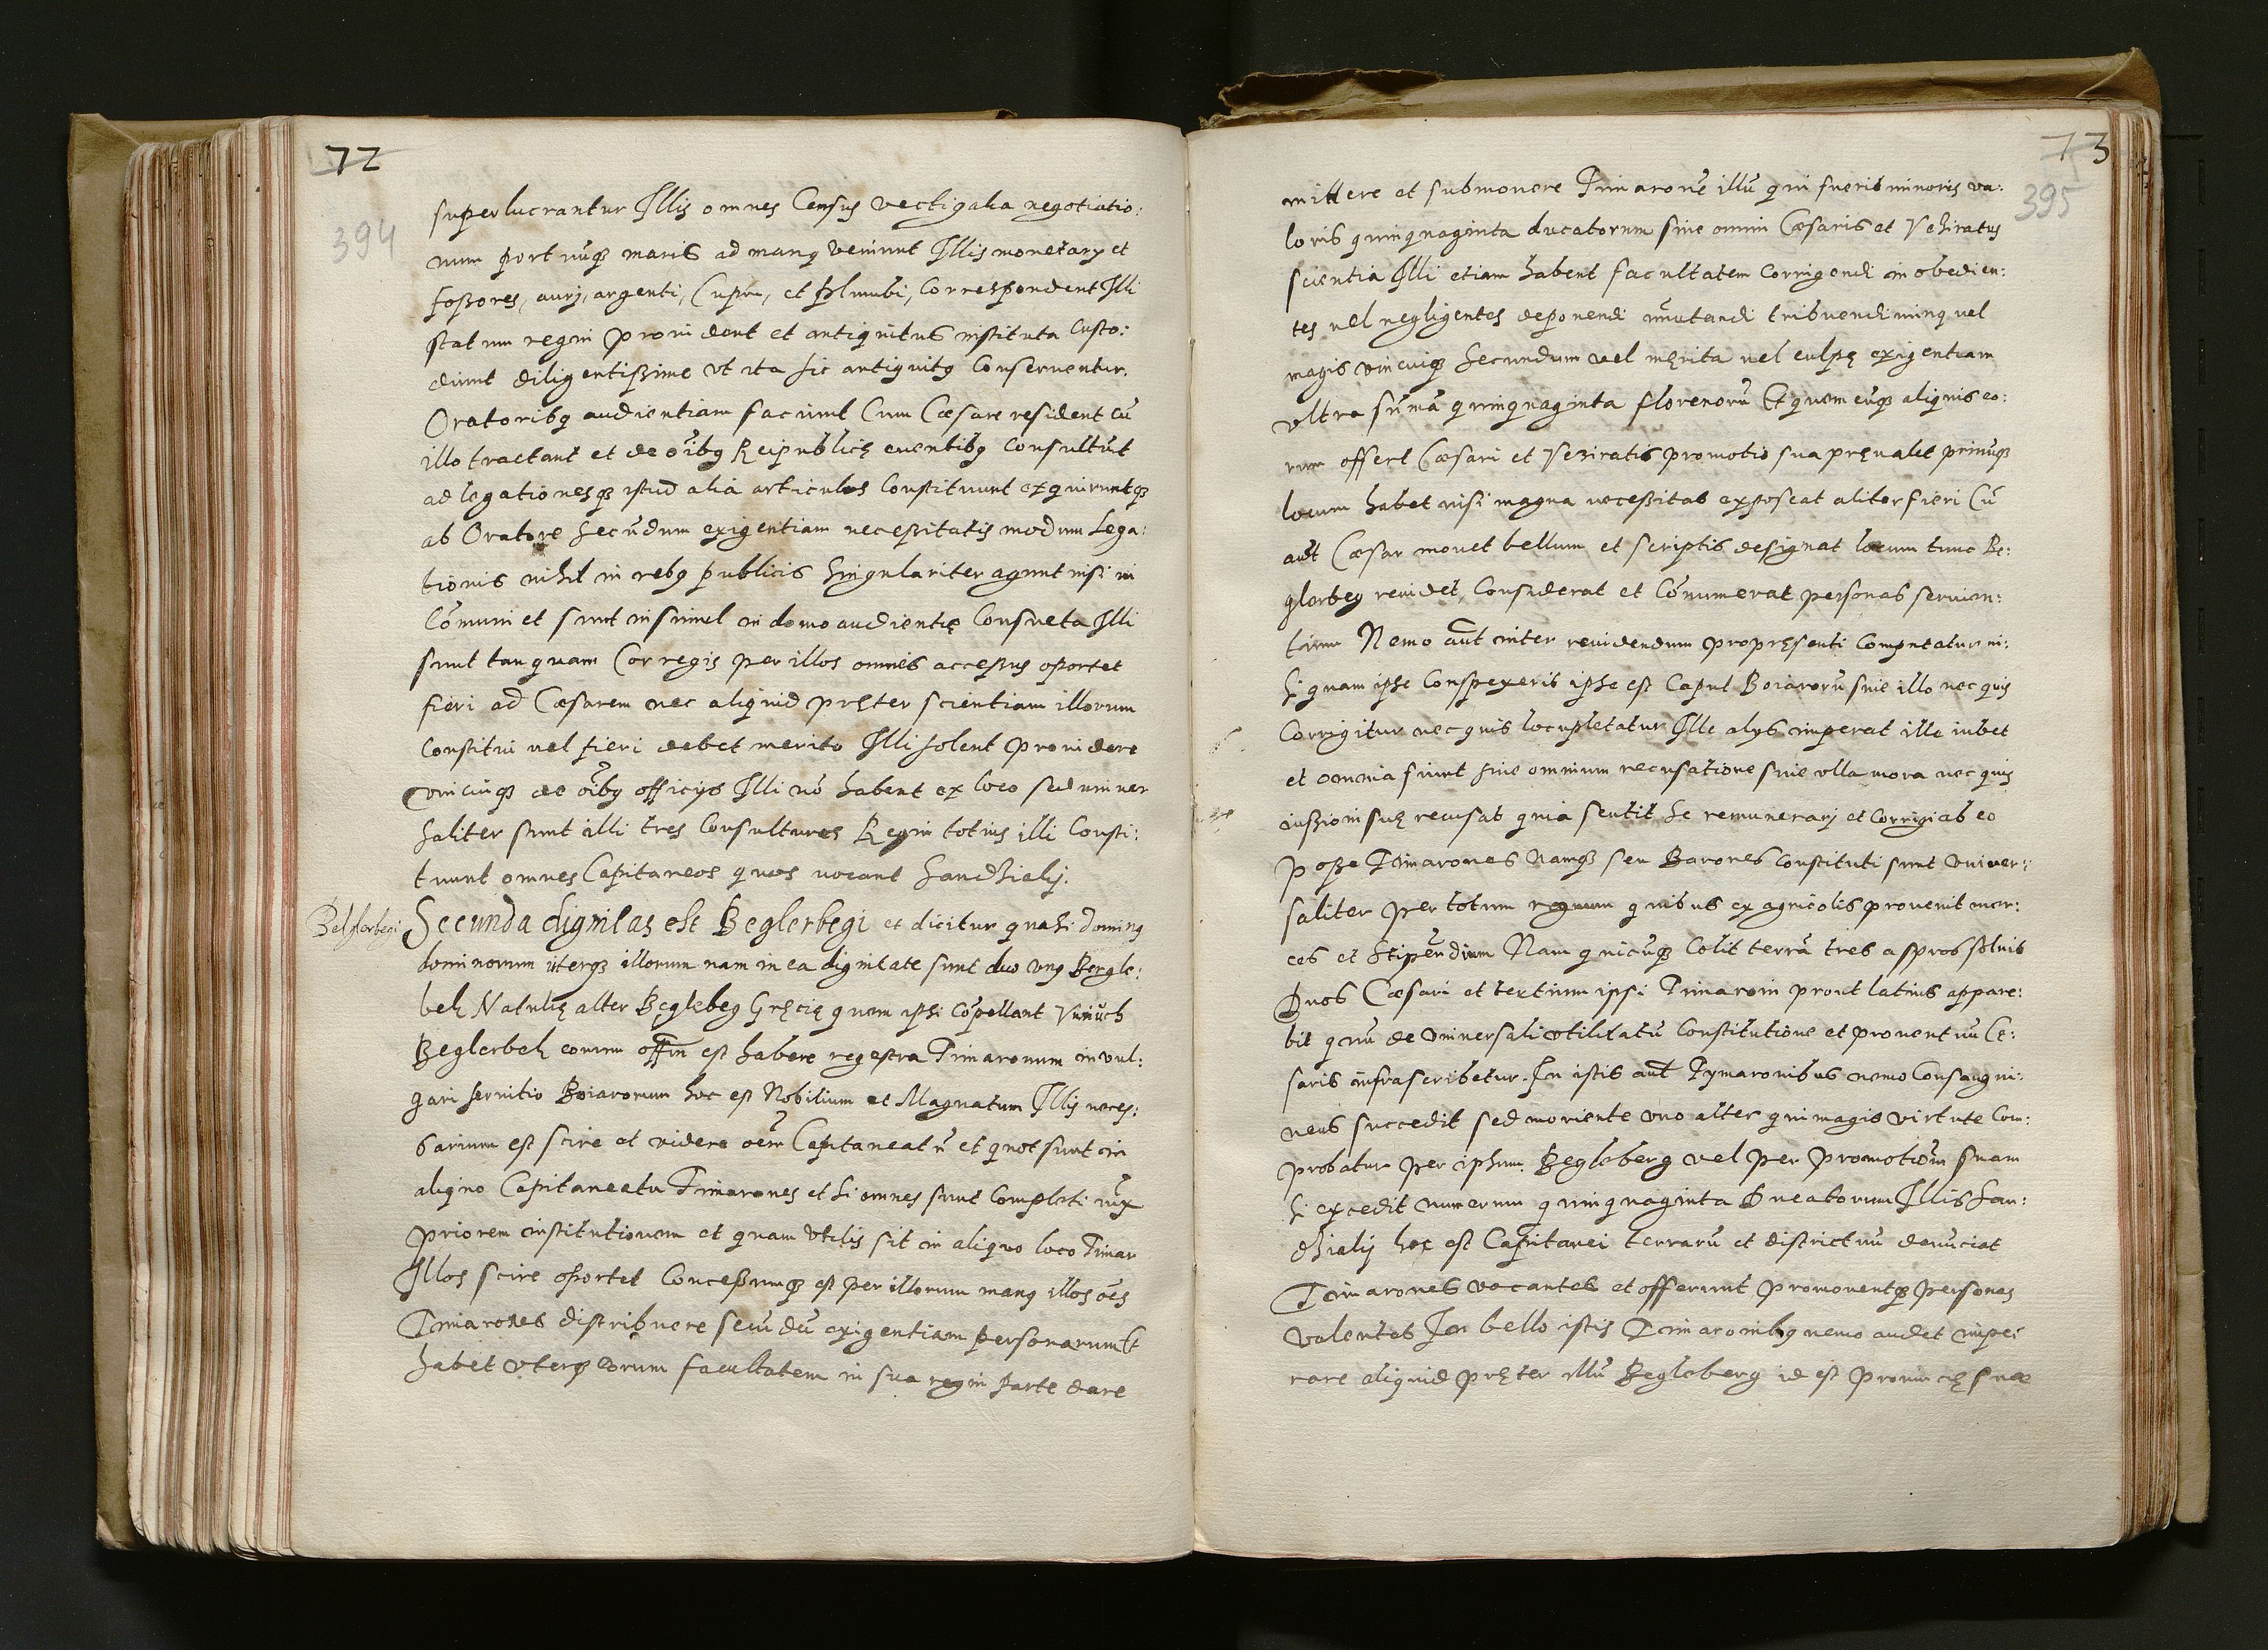 72
394
superlucrantur Illis omnes Census vectigalia negotiatio:
num portuūqз maris ad manq veniunt Illis monetarÿ et
foßores, aurj, argenti, Cupri, et plumbi, Correspondent Illi
statum regni prouident et antiquitus instituta Custo:
diunt diligentißime vt ita sic antiquitq Conseruentur.
Oratoribq audientiam faciunt Cum Cæsare resident cū
illo tractant et de oībq Reipublicę euentibq Consultūt
ad legationesqз istud alia articulos Constituunt exquiruntqз
ab Oratore Secūdum exigentiam neceßitatis modum Lega:
tionis nihil in rebq publicis Singulariter agunt nisi in
Cōmuni et sunt insimul in domo audientię Consueta Illi
sunt tanquam Cor regis per illos omnis acceßus oportet
fieri ad Cæsarem nec aliquid pręter scientiam illorum
Constitui vel fieri debet merito Illi solent prouidere
vnicuiqз de oībq officijs Illi nō habent ex loco sed vniuer
saliter sunt illi tres Consultures Regni totius illi Consti:
tuunt omnes Capitaneos quos uocant Sandhialÿ.
Belglerbegi
Secunda dignitas est Beglerbegi et dicitur quasi dominq
dominorum úterqз illorum nam in ea dignitate sunt duo vnq Bergle:
beh Natulię alter Beglebeg Gręcię quem ipsi Cōpellant Vrmüch
Beglerbeh eorum offm est habere regestra Timaronum in vul:
gari seruitio Boiaronum hoc est Nobilium et Magnatum Illis neces:
sarium est scire et videre oēm Capitaneatū et quot sunt in
aliquo Capitaneatu Timarones et si omnes sunt Completi iux
priorem institutionem et quam vtilis sit in aliquo loco Timar
Illos scire oportet Conceßumqз est per illorum manq illos oēs
Timarones distribuere secūdū exigentiam personarum Et
habet vterqз eorum facultatem in sua regni parte dare
73
395
mittere et submouere Timaronē illū qui fuerit minoris va:
loris quinquaginta ducatorum sine omni Cæsaris et Veziratus
scientia Illi etiam habent facultatem Corrigendi inobedien:
tes vel negligentes deponendi mutandi tribuendi minq vel
magis vnicuiqз Secundum vel merita vel culpę exigentiam
vltra sūmā quinquaginta florenorū Et quemcuqз aliquis eo:
rum offert Cæsari et Veziratis promotio sua pręualet primūqз
locum habet nisi magna neceßitas exposcat aliter fieri Cū
aut̄ Cæsar mouet bellum et scriptis designat locum tunc Be:
glerbeg reuidet, Considerat et Cōnumerat personas seruien:
tium Nemo aut̄ inter reuidendum pro pręsenti Computatur ni:
si quam ipse Conspexerit ipse est Caput Boiarorū sine illo nec quis
Corrigitur nec quis locupletatur Ille alys imperat ille iubet
et omnia fiunt sine omnium recusatione sine vlla mora nec quis
iußioni suę recusat quia sentit se remunerarj et Corrigi ab eo
poße Timarones Namqз seu Barones Constituti sunt vniuer:
saliter per totum regnum quibus ex agricolis prouenit mer:
ces et Stipendium Nam quicūqз Colit terrā tres aspros soluit
Duos Cæsari et tertium ipsi Timaroni prout latius appare:
bit quū de vniuersali vtilitatū Constitutione et prouentuū Ce:
saris infrascribetur. In istis aut̄ Tymaronibus nemo Consangui:
neus succedit sed moriente vno alter qui magis virtute Com:
probatur per ipsum Begleberg vel per promotiōm suam
si excedit numerum quinquaginta Ducatorum Illis San:
dhialÿ hoc est Capitanei terrarū et districtuū denūciat
Timarones vacantes et offerunt promouentqз personas
valentes In bello istis Timaronibq nemo audet impe:
rare aliquid pręter illū Begleberg id est Prouincię suæ